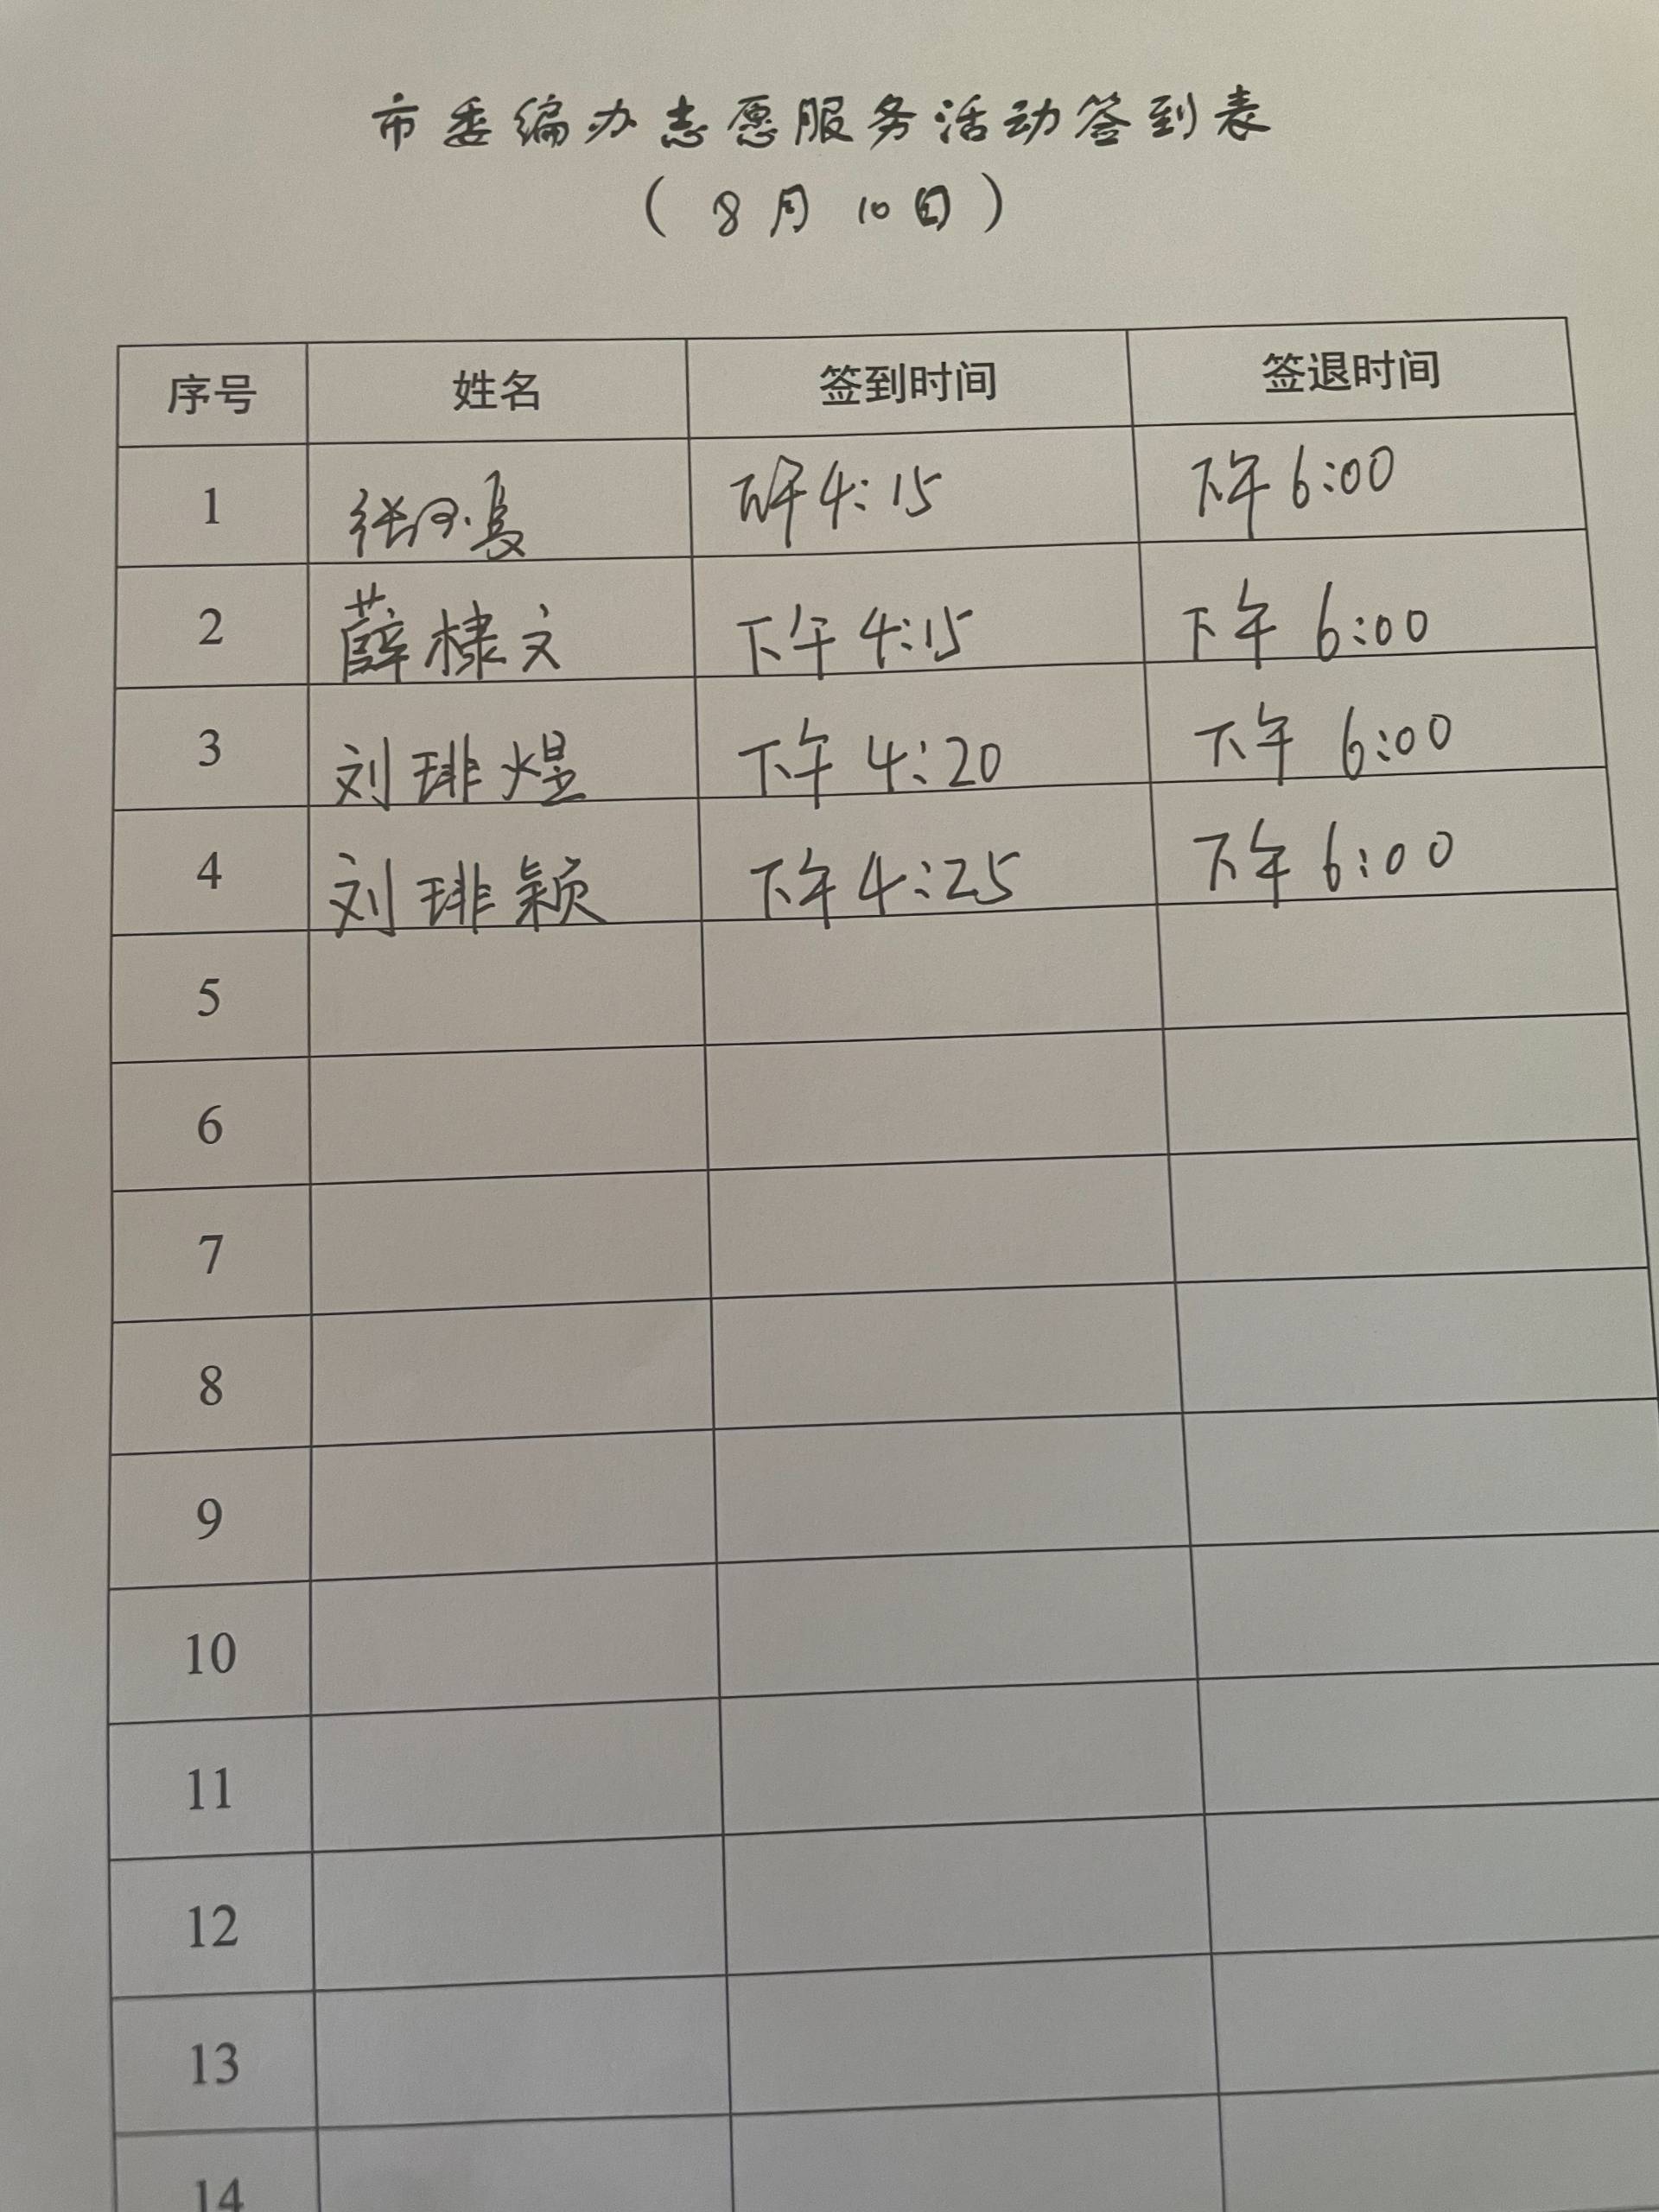 市委编办志愿服务活动签到表
(8月10日)
序号 姓名 签到时间 签退时间
1 下午4:15 下午6:00
2 薛棣文 下午4:15 下午6:00
3 刘琲煜 下午4:20 下午6:00
4 刘琲颖 下午4:25 下午6:00
5
6
7
8
9
10
11
12
13
14